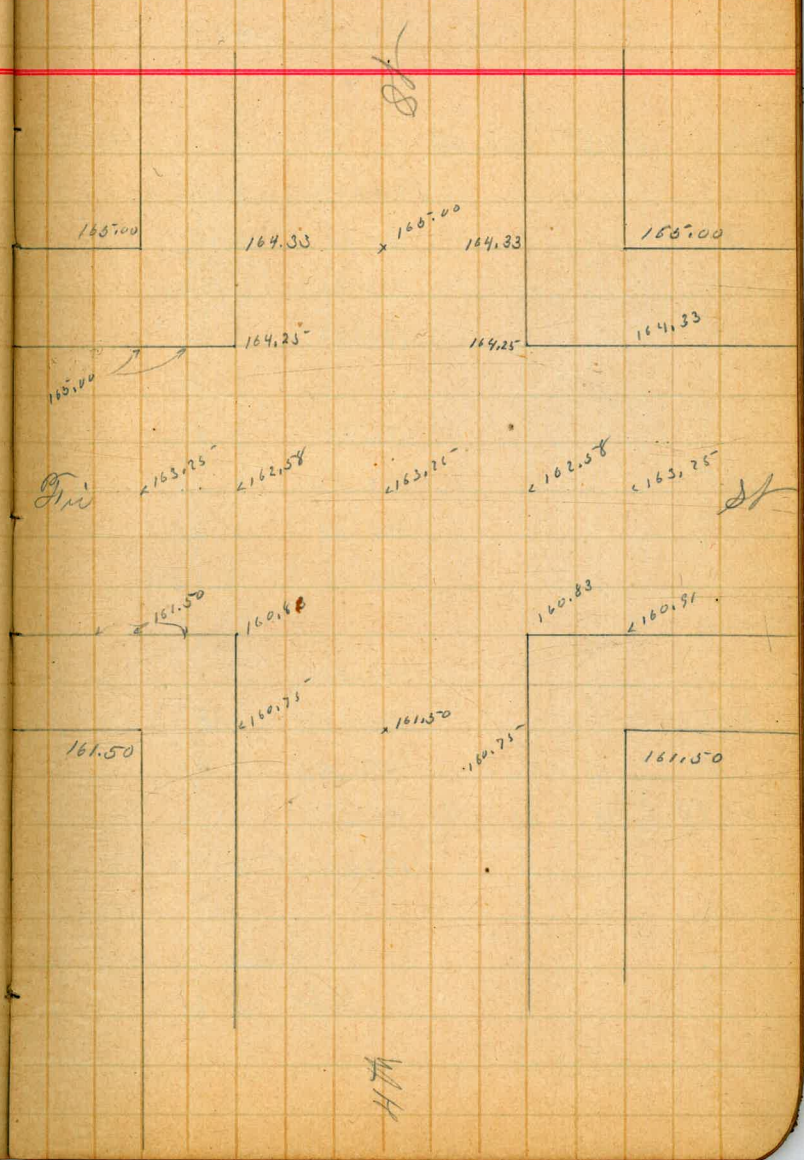 St
165.00 164.33 165.00 164.33 165.00
164.25 164.25 164.33
165.00
163.25 162.58 163.25 162.58 163.25
Fir St
161.50 160.83 160.83 160.91
160.75 161.50 160.75
161.50 161.50